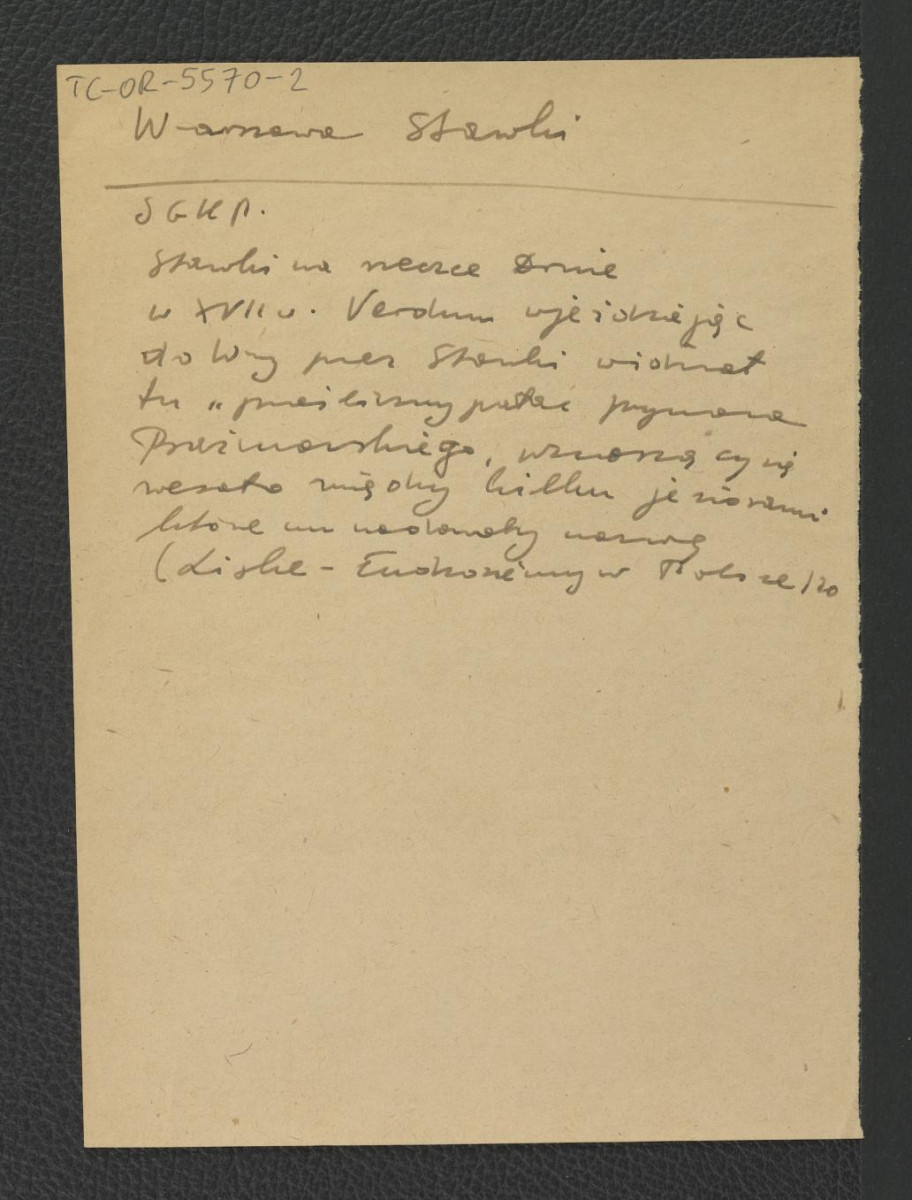 TC-OR-5570-2
Warszawa Stawki
SGKP.
Stawki na rzeczce Drnie
w XVII w. Verdum wjeżdżając
do Wwy przez Stawki widział
tu „prześliczny pałac prymasa
Prażmowskiego, wznoszący się
wesoło między kilku jeziorami
które mu nadawały nazwę
(Liske - Cudzoziemcy w Polsce 120